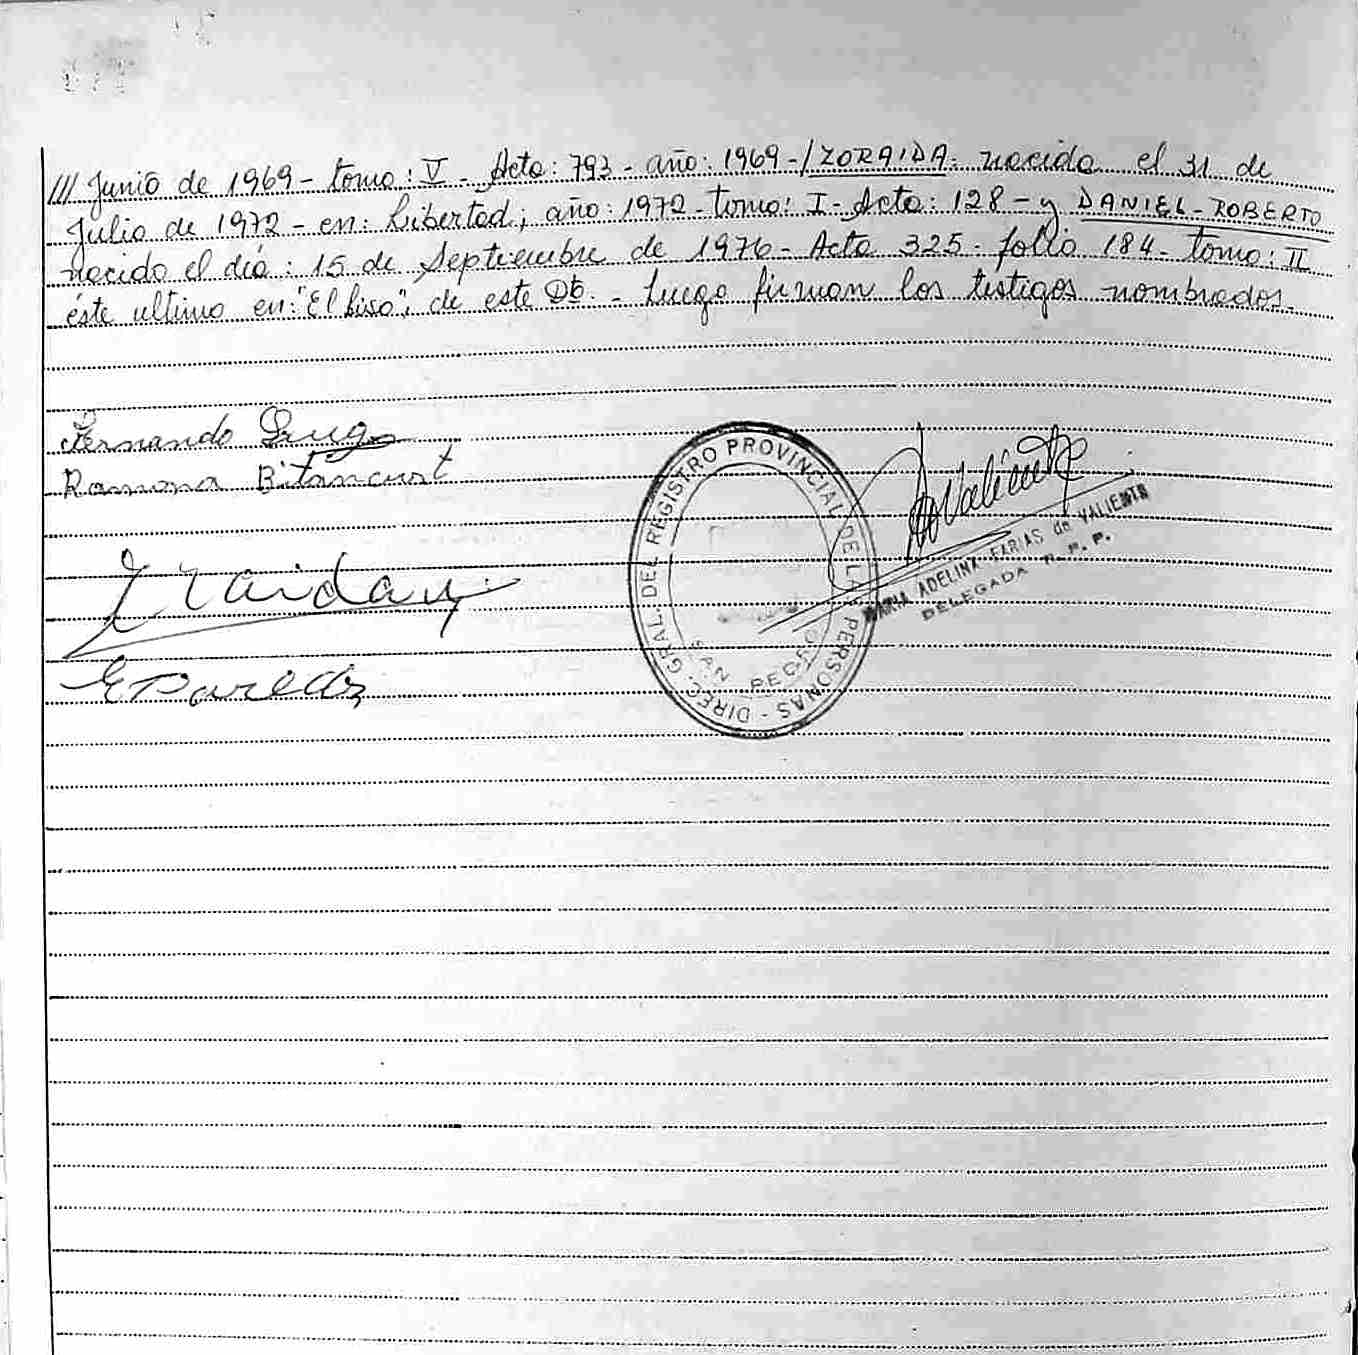 /// Junio de 1969 - tomo: V - Acta: 793 - año: 1969 - / ZORAIDA: nacida el 31 de
Julio de 1972 - en: Libertad; año: 1972 - tomo: I - Acta: 128 - y DANIEL - ROBERTO
nacido el día: 15 de Septiembre de 1976 - Acta 325 - folio 184 - tomo: II
éste ultimo en: "El Piso"; de este Dto. - Luego firman los testigos nombrados.
Fernando Lugo
Ramona Bitancurt
E Paredes
DIREC. GRAL. DEL REGISTRO PROVINCIAL DE L PERSONAS -
SAN PEDRO
Valiente
MARIA ADELINA FARIAS de VALIENTE
DELEGADA R. P. P.